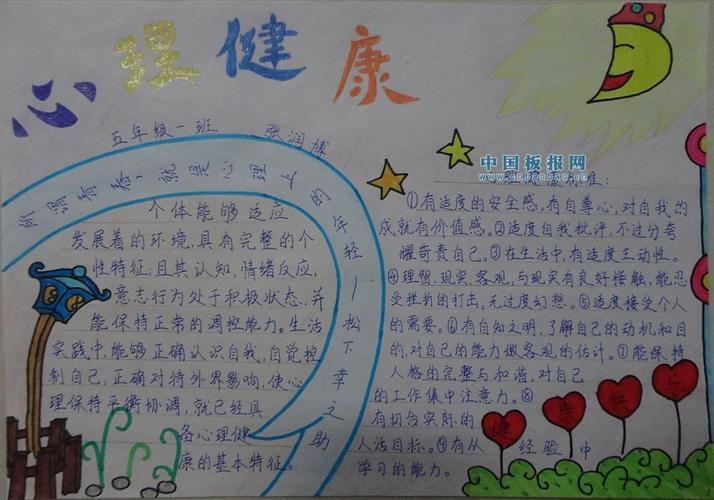 心理健康
五年级一班 张润博
所谓青春,就是心理上的年轻—松下幸之助
个体能够适应
发展着的环境,具有完整的个
性特征,且其认知,情绪反应,
意志行为处于积极状态,并
能保持正常的调控能力。生活
实践中,能够正确认识自我,自觉控
制自己,正确对待外界影响,使心
理保持平衡协调,就已经具
备心理健
康的基本特征。
中国板报网
www.cnbanbao.cn
标准:
①有适度的安全感,有自尊心,对自我的
成就有价值感。②适度自我批评,不过分夸
耀苛责自己。③在生活中,有适度主动性。
④理智、现实、客观,与现实有良好接触,能忍
受挫折的打击,无过度幻想。⑤适度接受个人
的需要。⑥有自知之明,了解自己的动机和目
的,对自己的能力做客观的估计。⑦能保持
人格的完整与和谐,对自己
的工作集中注意力。⑧
有切合实际的
人活目标。⑨有从经验中
学习的能力。
健康快乐